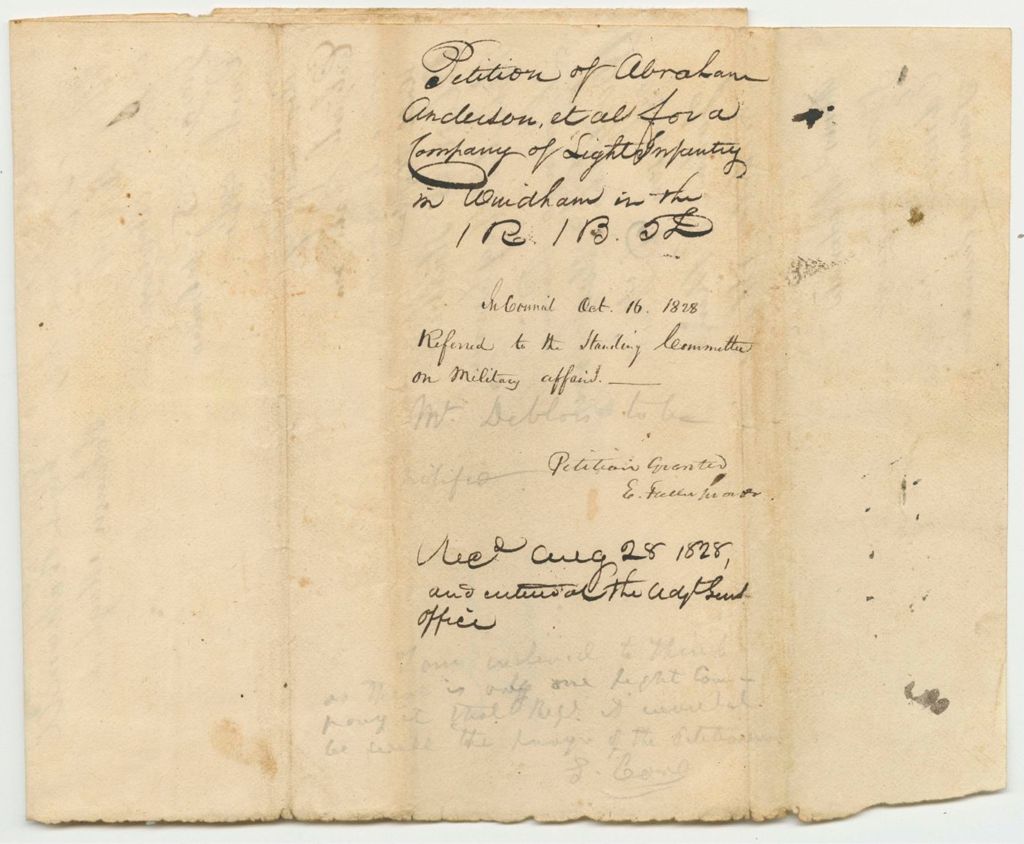 Petition of Abraham
Anderson, et als for a
Company of Light Infantry
in Windham in the
1 R. 1 B. 5 D
In Council Oct. 16. 1828
Referred to the Standing Committee
on Military affairs. —
Mr. Deblois to be
Petition Granted
E. Fuller
Recd Aug 28 1828,
and entered at the Adjt Genl
office
I am inclined to think
as there is only one Light Com-
pany in that Regt. it would
be well the prayer of the Petitioners